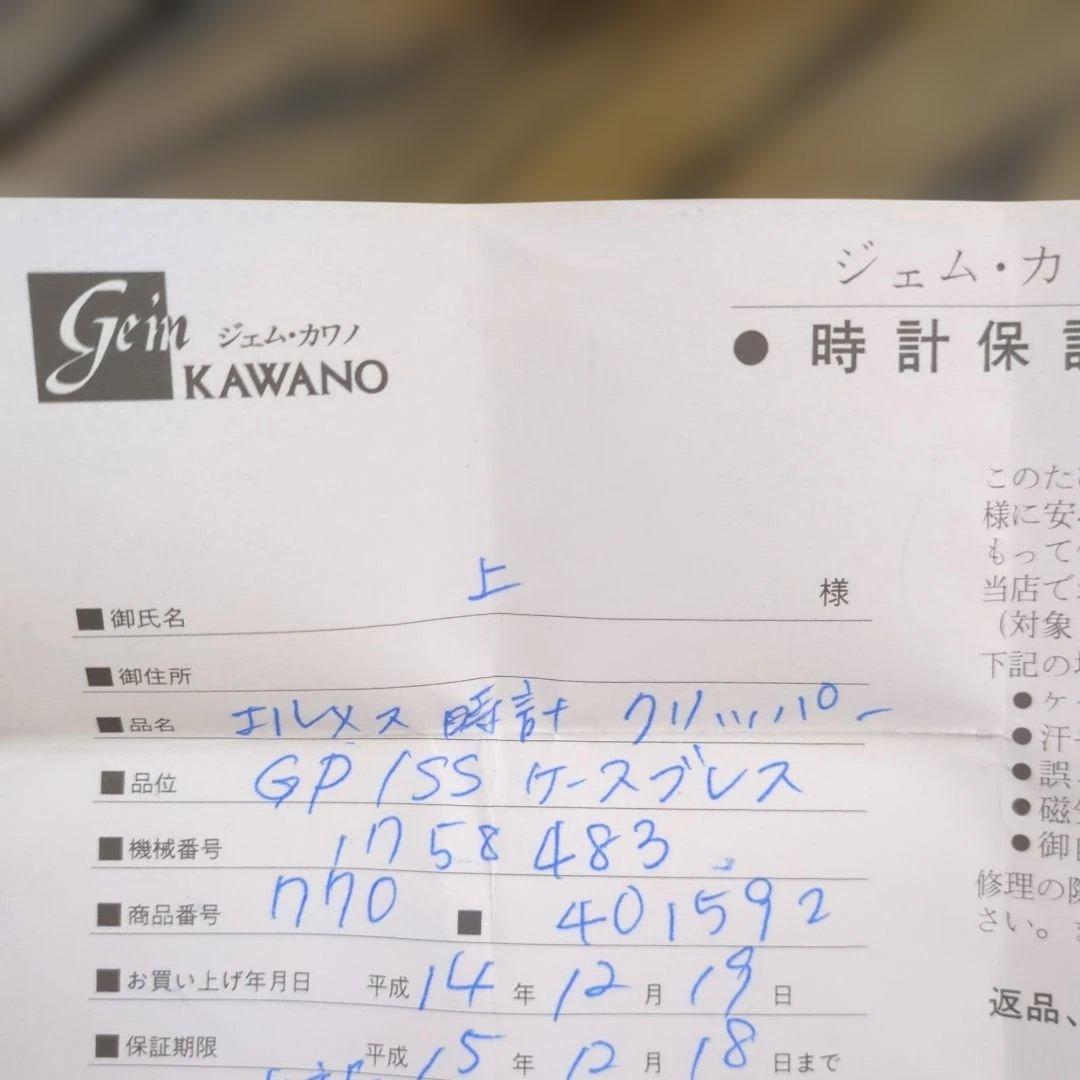 Gem ジェム・カワノ
KAWANO
ジェム・カ
●時計保
■御氏名 上 様
■御住所
■品名 エルメス 時計 クリッパー
■品位 GP/SS ケースブレス
■機械番号 1758483
■商品番号 770 ■ 401592
■お買い上げ年月日 平成14年12月19日
■保証期限 平成15年12月18日まで
このた
様に安
もって
当店で
(対象
下記の
●ケ
●汗
●誤
●磁
●御
修理の
さい。
返品、